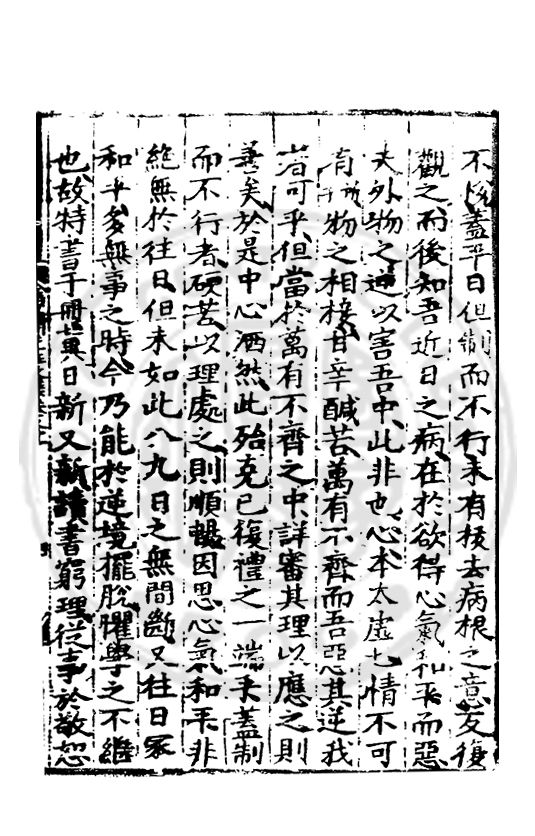 不悅蓋平日但制而不行未有拔去病根之意反復
觀之而後知吾近日之病在於欲得心氣和平而惡
夫外物之逆以害吾中此非也心本太虛七情不可
有所物之相接甘辛鹹苦萬有不齊而吾惡其逆我
者可乎但當於萬有不齊之中詳審其理以應之則
善矣於是中心洒然此殆克己復禮之一端乎蓋制
而不行者硬苦以理處之則順暢因思心氣和平非
絶無於往日但未如此八九日之無間斷又往日家
和平多無事之時今乃能於逆境擺脫懼學之不繼
也故特書于冊冀日新又新讀書窮理從事於敬恕